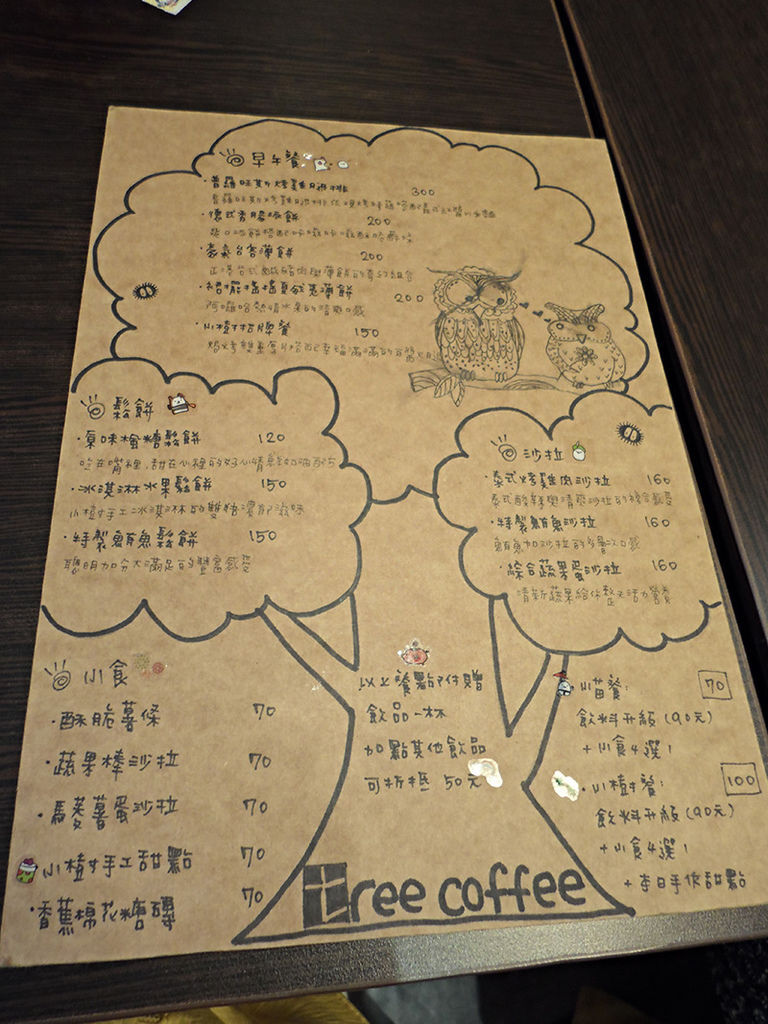 早午餐
·普羅旺斯烤雞腿排 300
·德式香腸板餅 200
·泰泰台客薄餅 200
正港台式鹹酥肉與薄餅的奇幻組合
·裙擺搖搖夏威夷薄餅 200
阿囉哈熱情水果的清爽口感
·小樹招牌餐 150
鬆餅
·原味楓糖鬆餅 120
吃在嘴裡,甜在心裡的好心情
·冰淇淋水果鬆餅 150
小樹手工冰淇淋的雙重濃郁滋味
·特製鮪魚鬆餅 150
聰明加分大滿足的豐富感受
沙拉
·泰式烤雞肉沙拉 160
泰式酸辣與清爽沙拉的複合感受
·特製鮪魚沙拉 160
鮪魚加沙拉的多層次口感
·綜合蔬果蛋沙拉 160
清新蔬果給你整天活力營養
小食
·酥脆薯條 70
·蔬果棒沙拉 70
·馬鈴薯蛋沙拉 70
·小樹手工甜點 70
·香蕉棉花糖磚 70
以上餐點附贈
飲品一杯
加點其他飲品
可折抵 50元
小苗餐: 70
飲料升級(90元)
+小食4選1
·小樹餐: 100
飲料升級(90元)
+小食4選1
+本日手作甜點
tree coffee